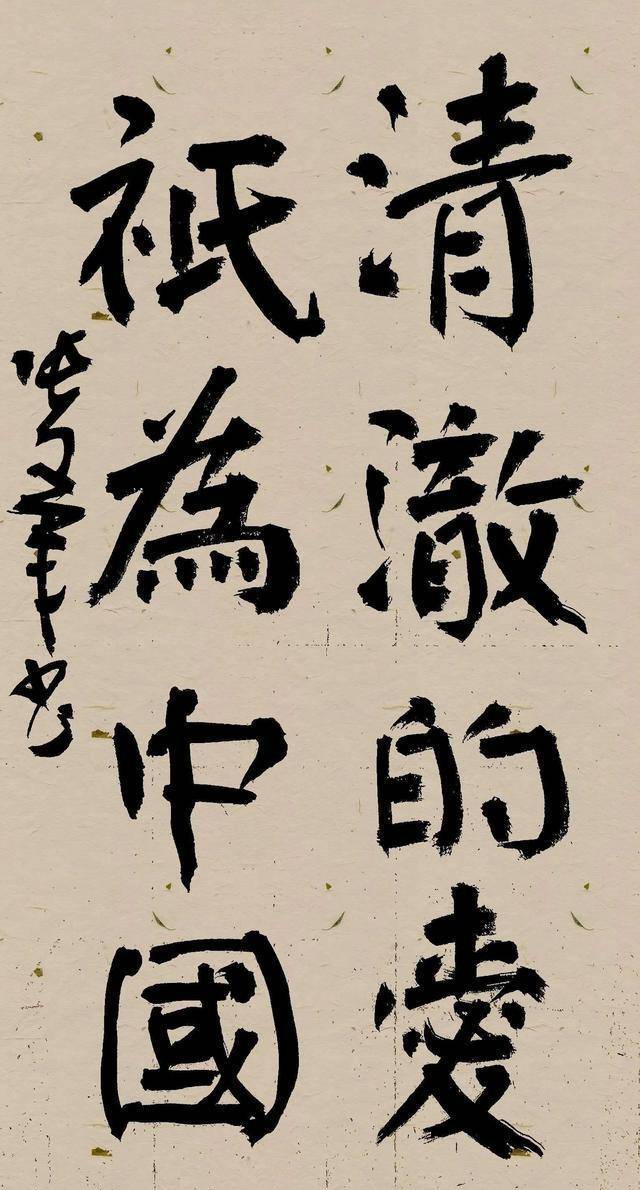 清澈的愛
祇為中國